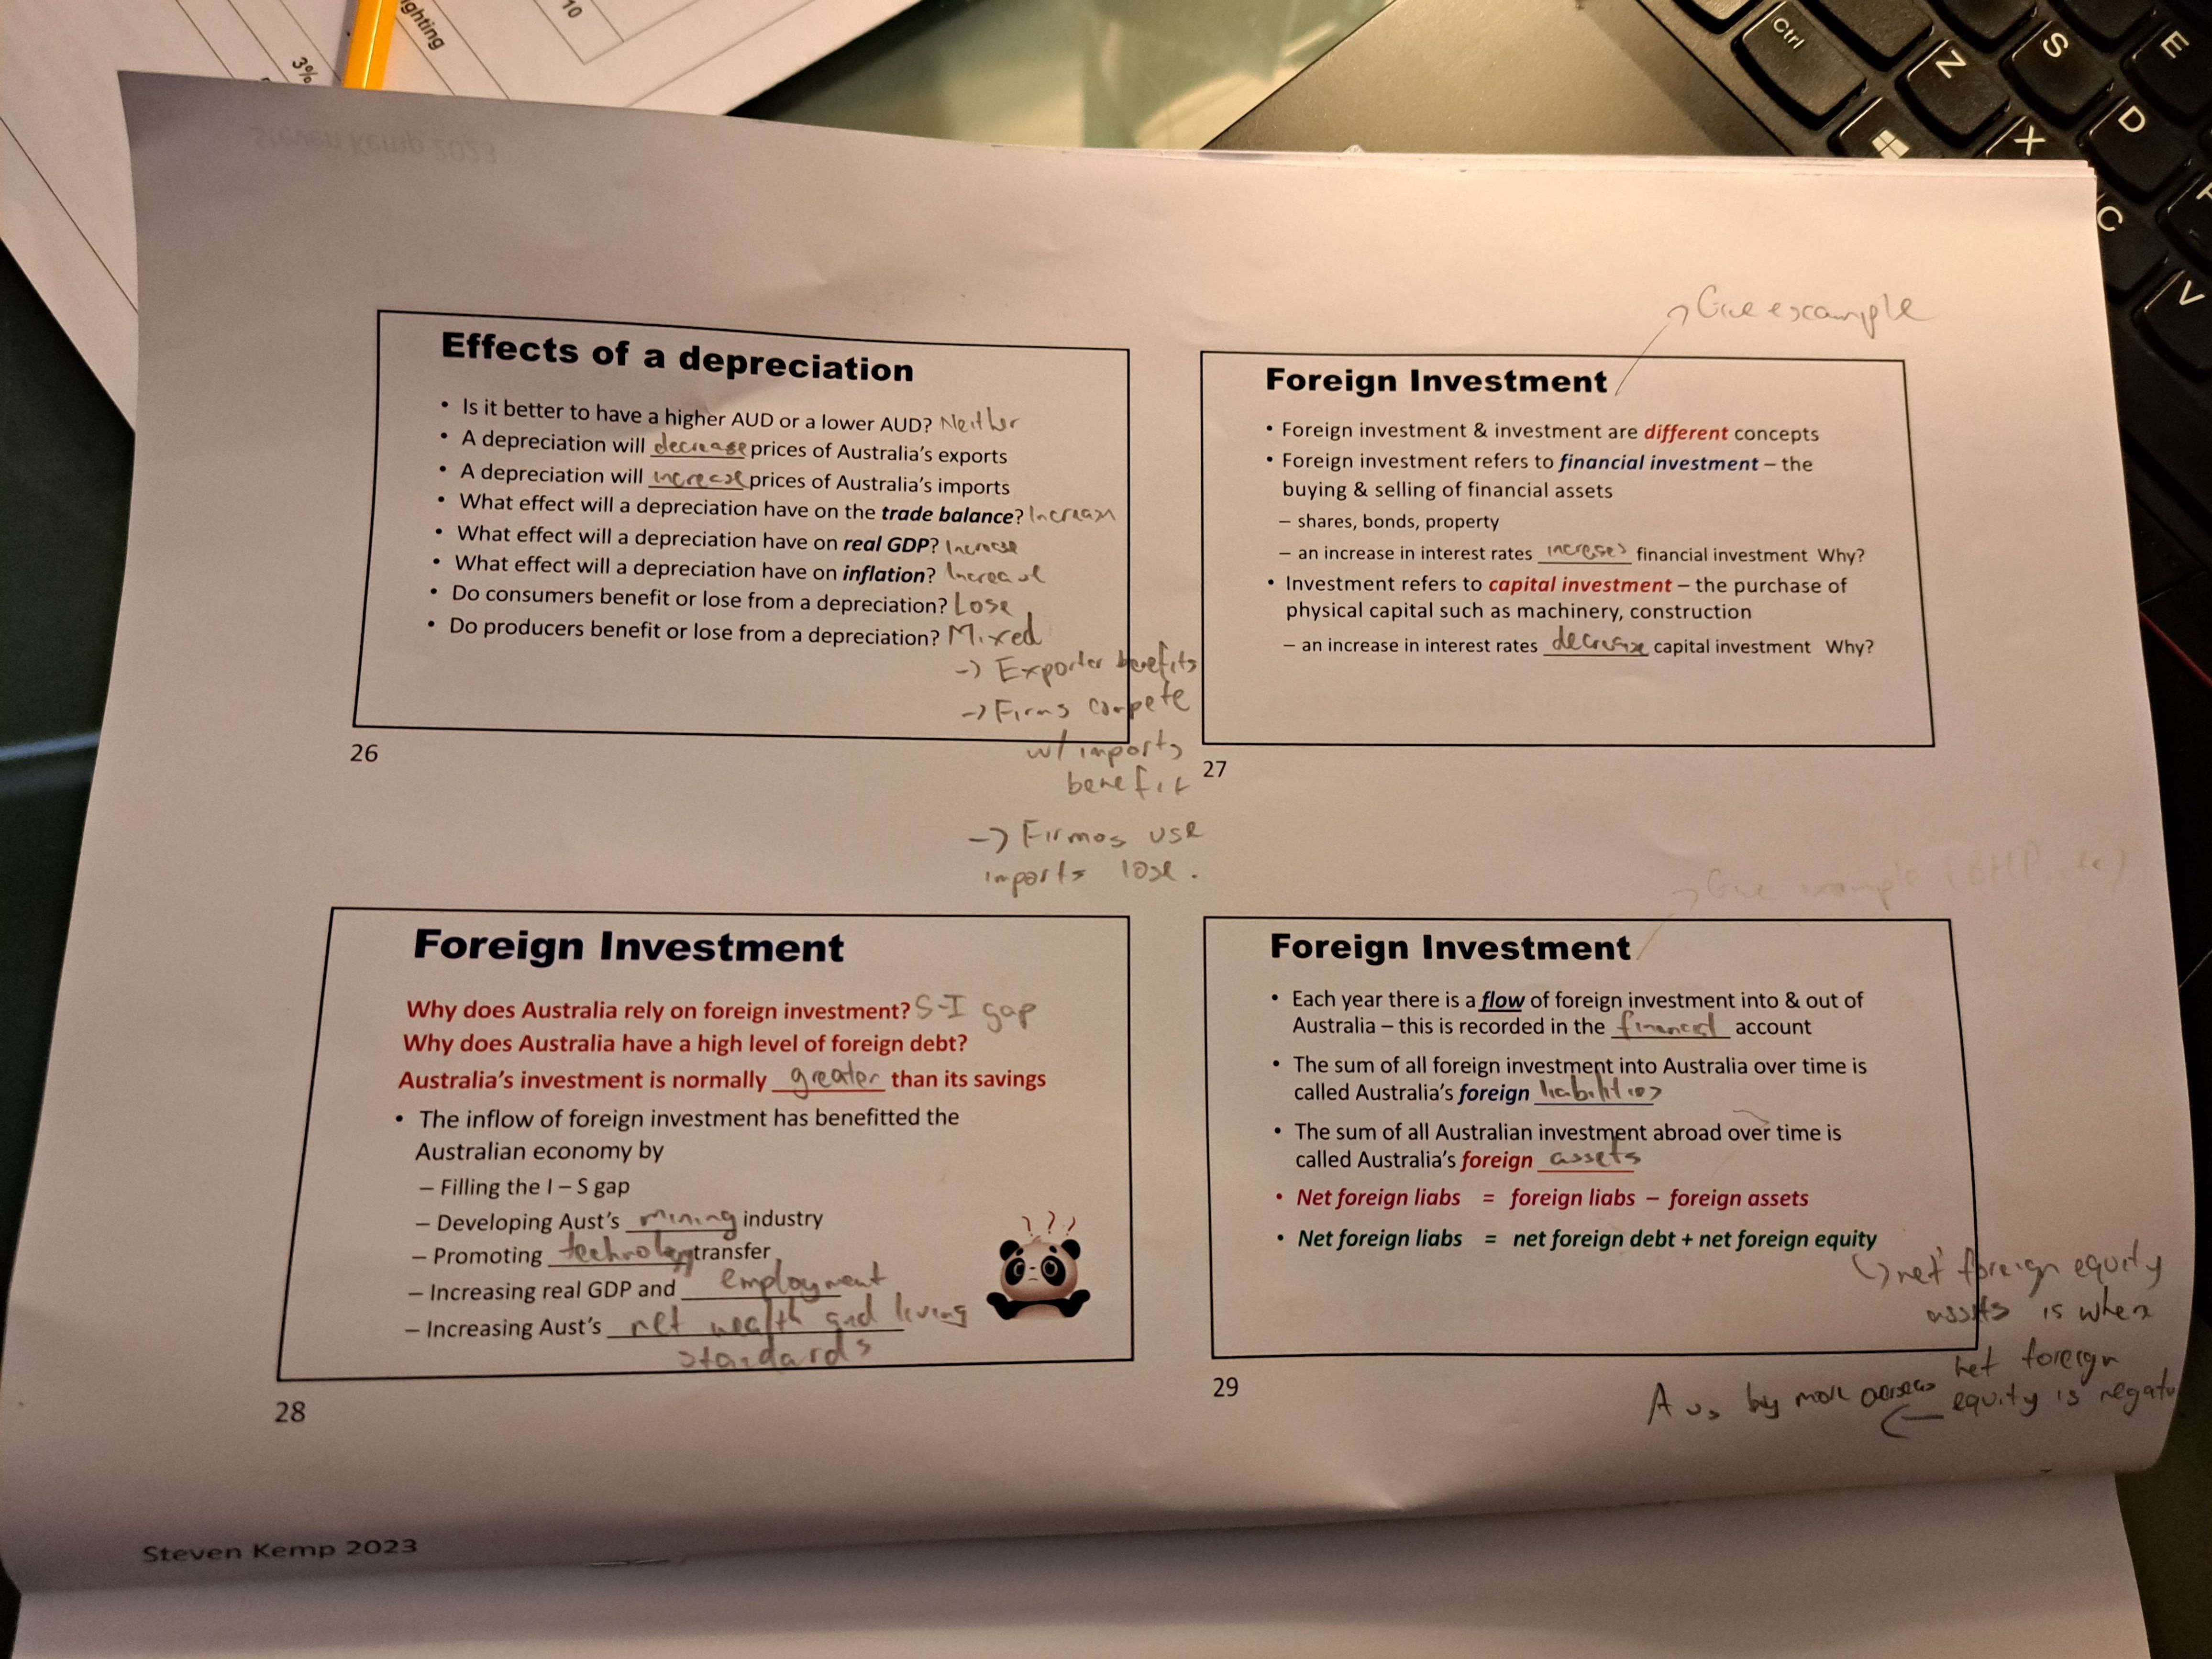 ghting
10
3%
Ctrl
Z
S
E
X
D
C
V
Steven Kemp 2023
Effects of a depreciation
• Is it better to have a higher AUD or a lower AUD? Neither
• A depreciation will decrease prices of Australia's exports
• A depreciation will increase prices of Australia's imports
• What effect will a depreciation have on the trade balance? Increase
• What effect will a depreciation have on real GDP? Increase
• What effect will a depreciation have on inflation? Increase
• Do consumers benefit or lose from a depreciation? Lose
• Do producers benefit or lose from a depreciation? Mixed
-> Exporter benefits
-> Firms compete
w/ imports
benefit
-> Firmos use
imports lose.
26
-> Give example
Foreign Investment
• Foreign investment & investment are different concepts
• Foreign investment refers to financial investment – the
buying & selling of financial assets
– shares, bonds, property
– an increase in interest rates increases financial investment Why?
• Investment refers to capital investment – the purchase of
physical capital such as machinery, construction
– an increase in interest rates decrease capital investment Why?
27
Foreign Investment
Why does Australia rely on foreign investment? S-I gap
Why does Australia have a high level of foreign debt?
Australia's investment is normally greater than its savings
• The inflow of foreign investment has benefitted the
Australian economy by
– Filling the I – S gap
– Developing Aust's mining industry
– Promoting technology transfer
– Increasing real GDP and employment
– Increasing Aust's net wealth and living
standards
???
28
-> Give example (BHP, etc)
Foreign Investment
• Each year there is a flow of foreign investment into & out of
Australia – this is recorded in the financial account
• The sum of all foreign investment into Australia over time is
called Australia's foreign liabilities
• The sum of all Australian investment abroad over time is
called Australia's foreign assets
• Net foreign liabs = foreign liabs – foreign assets
• Net foreign liabs = net foreign debt + net foreign equity
net foreign equity
assets is when
net foreign
equity is negative
Aus buy more overseas
29
Steven Kemp 2023